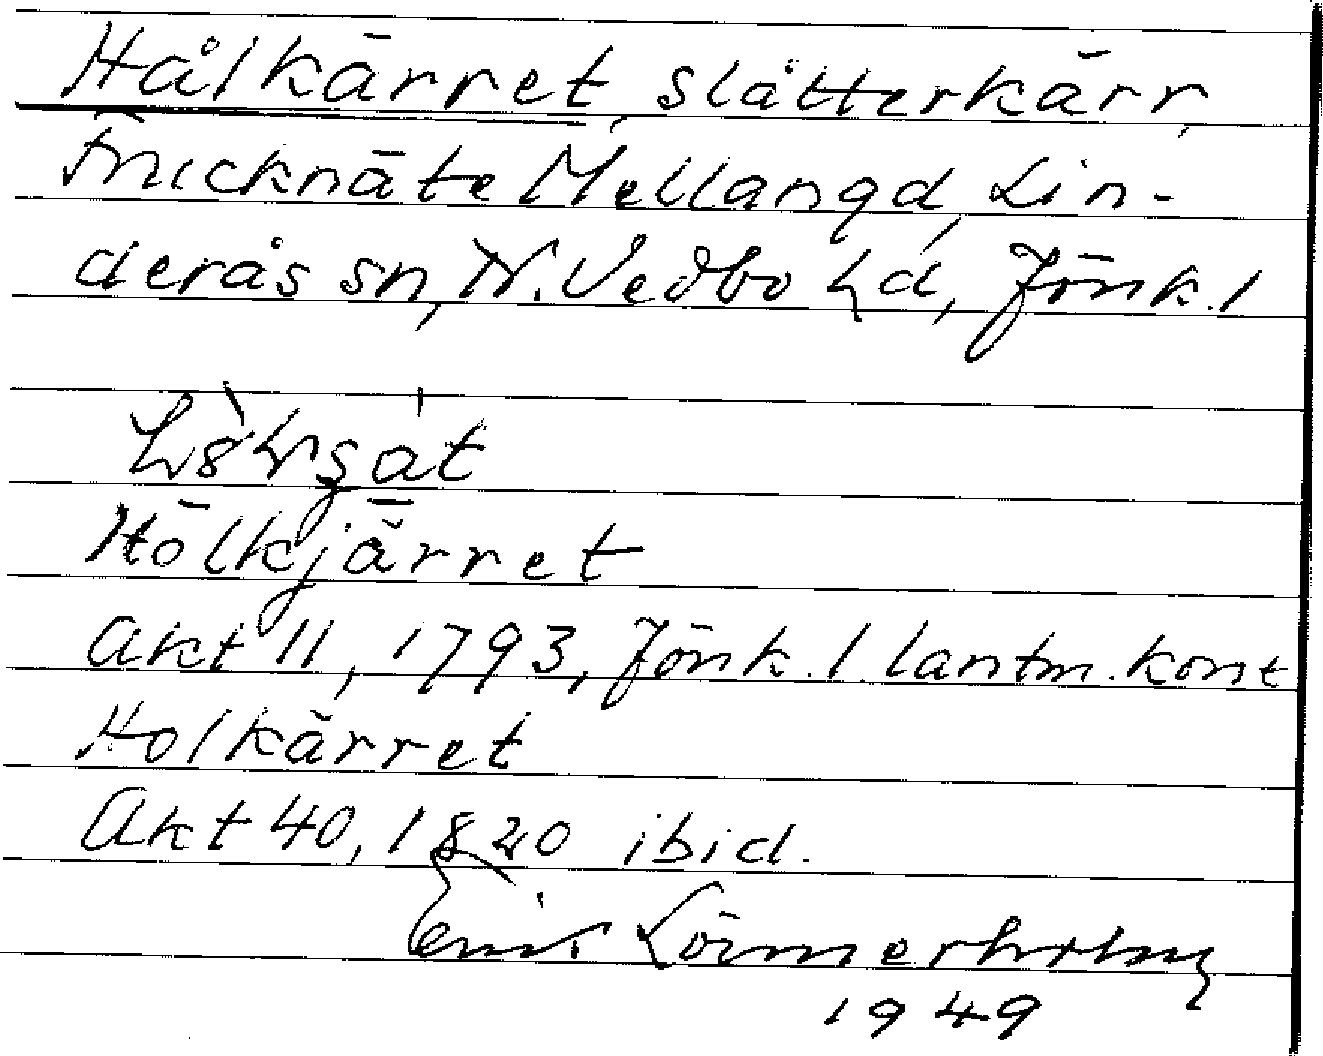 Hålkärret, slåtterkärr,
Fnicknäte Mellangd, Lin-
derås sn, N. Vedbo hd, Jönk. l
Hölkjärret
Akt 11, 1793, Jönk. l. lantm. kont
Holkärret
Akt 40, 1820 ibid.
Linnerholm
1949